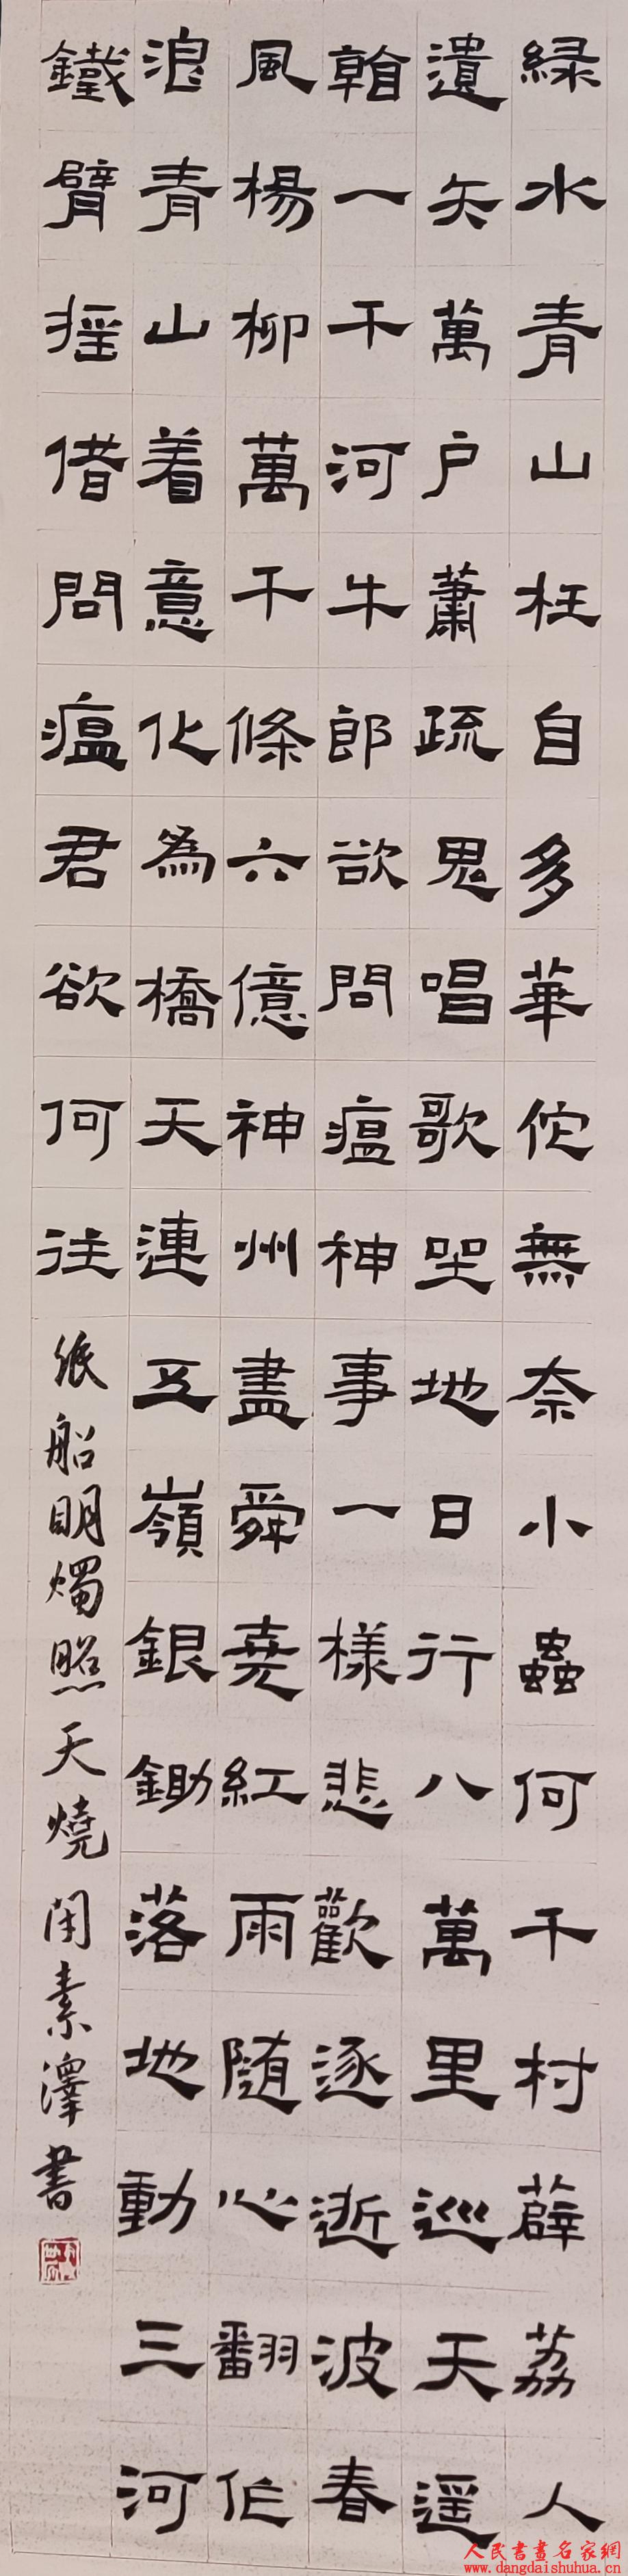 緑水青山枉自多華佗無奈小蟲何千村薜荔人
遺矢萬户蕭疏鬼唱歌坐地日行八萬里巡天遥
看一千河牛郎欲問瘟神事一樣悲歡逐逝波春
風楊柳萬千條六億神州盡舜堯紅雨随心翻作
浪青山着意化為橋天連五嶺銀鋤落地動三河
鐵臂摇借問瘟君欲何往紙船明燭照天燒 素澤書
人民書畫名家網
www.dangdaishuhua.cn